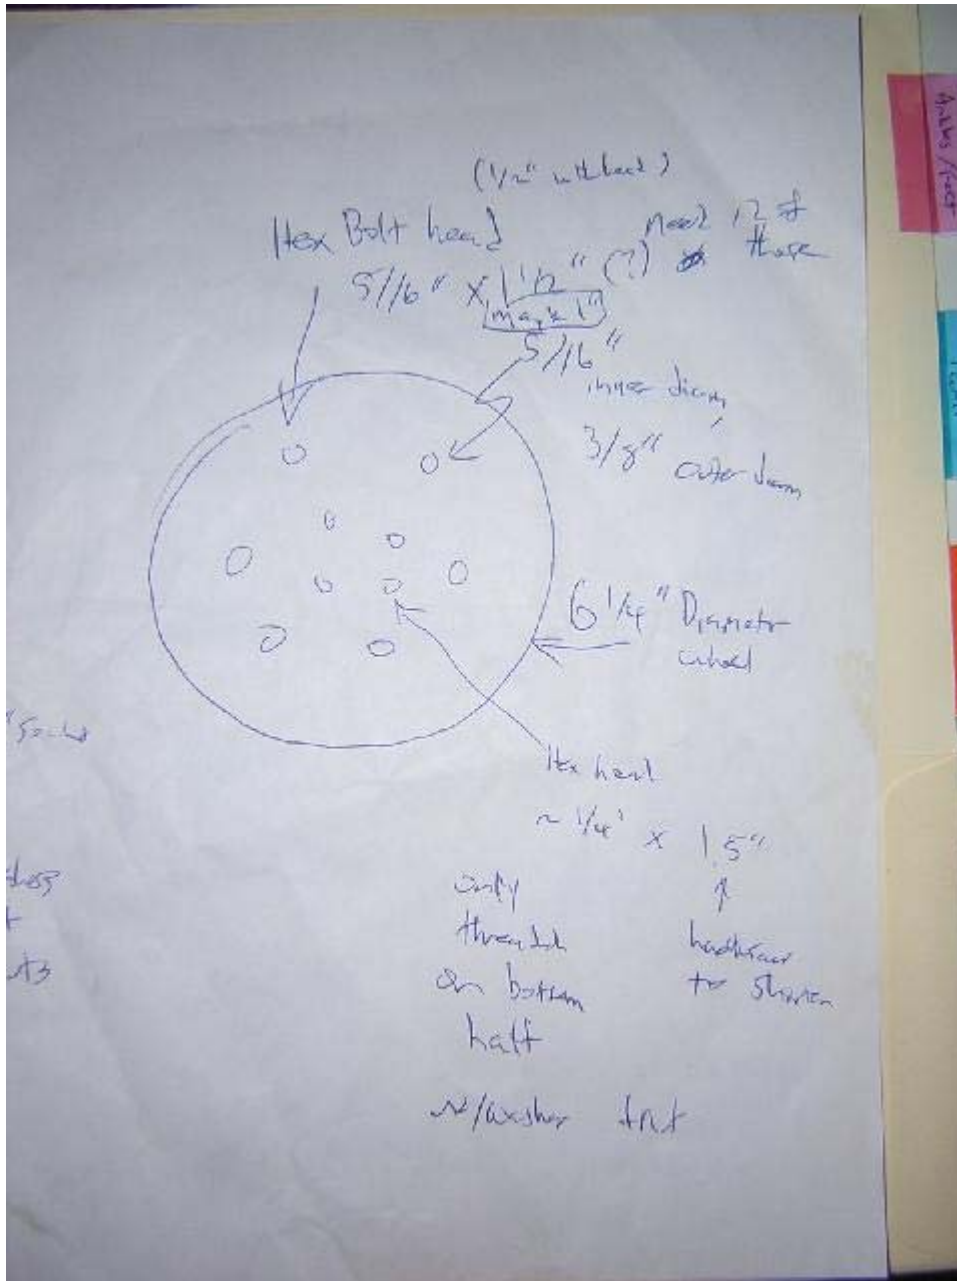 (1/2" w/head)
Hex Bolt head
Need 12 of
these
5/16" x 1 1/2" (?)
5/16"
inner diam,
3/8" outer diam
6 1/4" Diameter
wheel
Hex head
~ 1/4" x 1.5"
only
threaded
on bottom
half
had
to shorten
w/washer + nut